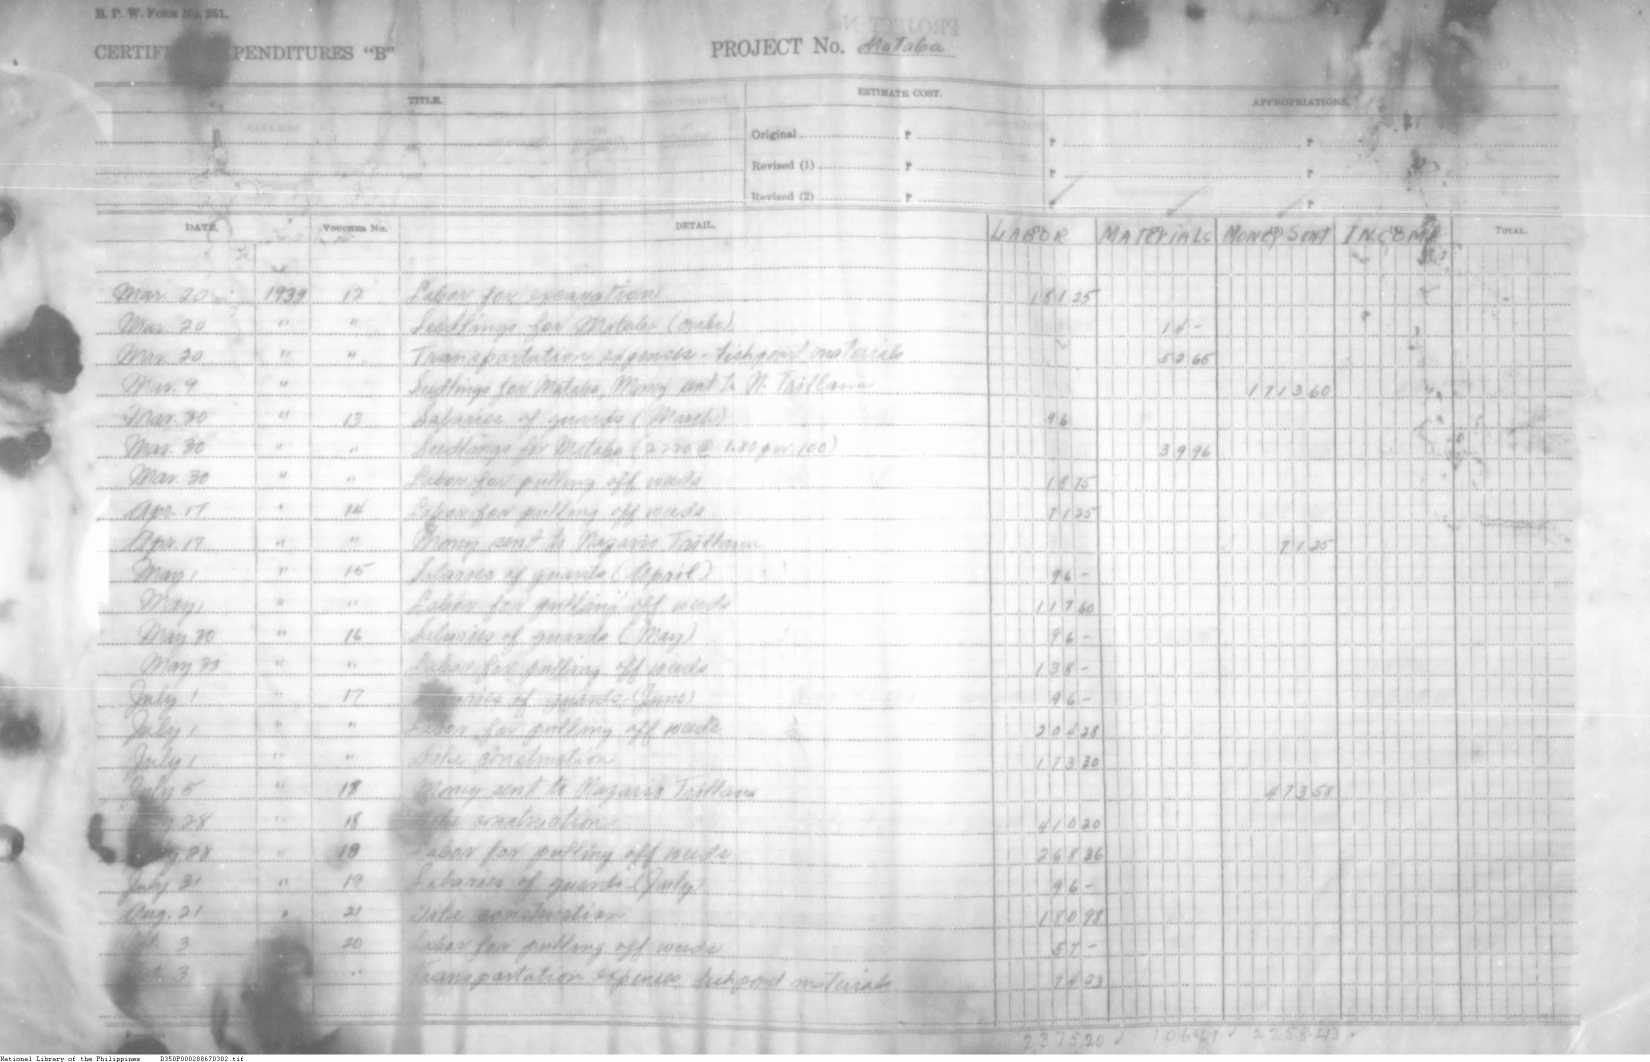 B. P. W. Form No. 251.
CERTIF EXPENDITURES "B"
PROJECT No. Mataba
TITLE.
ESTIMATE COST.
APPROPRIATIONS.
Original ₱ ₱ ₱
Revised (1) ₱ ₱ ₱
Revised (2) ₱ ₱ ₱
DATE. VOUCHER No. DETAIL. LABOR MATERIALS MONEY SENT INCOME TOTAL.
Mar. 20 1939 12 Labor for excavation 181 25
Mar. 20 " " Seedlings for Mataba
Mar. 20 " " Transportation expenses - fishpond materials 52 65
Mar. 9 " Seedlings for Mataba, Money sent to N. Trillana 1713 60
Mar. 30 " 13 Salaries of guards (March) 96
Mar. 30 " " Seedlings for Mataba (2220 @ 1.80 per 100) 39 96
Mar. 30 " " Labor for pulling off weeds 18 75
Apr. 17 " 14 Labor for pulling off weeds 71 25
Apr. 17 " " Money sent to Nazario Trillana 71 25
May 1 " 15 Salaries of guards (April) 96 -
May 1 " " Labor for pulling off weeds 117 60
May 30 " 16 Salaries of guards (May) 96 -
May 30 " " Labor for pulling off weeds 138 -
July 1 " 17 of guards (June) 96 -
July 1 " " Labor for pulling off weeds
July 1 " " Dike construction 173 30
July 5 " 18 Money sent to Nazario Trillana 473 58
28 18 Dike construction 410 20
28 " 18 Labor for pulling off weeds 268 26
July 31 " 19 Salaries of guards (July) 96 -
Aug. 21 " 21 Dike construction 180 98
3 20 Labor for pulling off weeds 57 -
3 " Transportation expenses fishpond materials
2375.20 106.61 2258.43
National Library of the Philippines D350P000288670302.tif